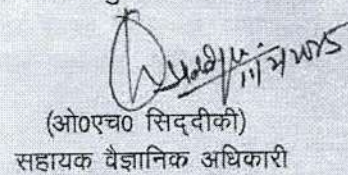 (ओ0एच0 सिद्दीकी)
सहायक वैज्ञानिक अधिकारी